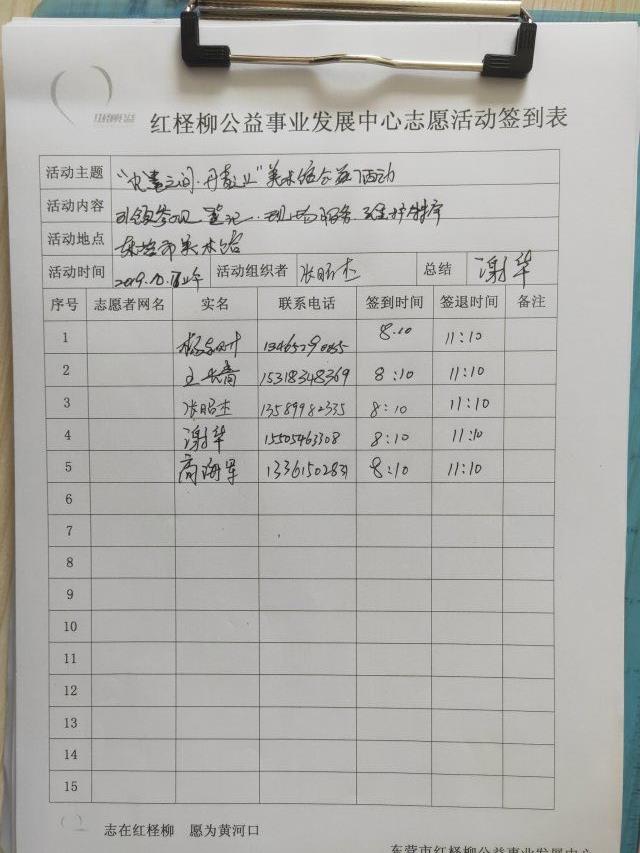 红柽柳公益
红柽柳公益事业发展中心志愿活动签到表
活动主题 美术馆公益活动
活动内容 引领参观 登记 现场服务
活动地点 东营市美术馆
活动时间 2019.10. 上午 活动组织者 张昭杰 总结 谢华
序号 志愿者网名 实名 联系电话 签到时间 签退时间 备注
1 8.10 11:10
2 15318348369 8:10 11:10
3 张昭杰 13589982335 8:10 11:10
4 谢华 15505463308 8:10 11:10
5 商海军 13361502831 8:10 11:10
6
7
8
9
10
11
12
13
14
15
志在红柽柳 愿为黄河口
东营市红柽柳公益事业发展中心